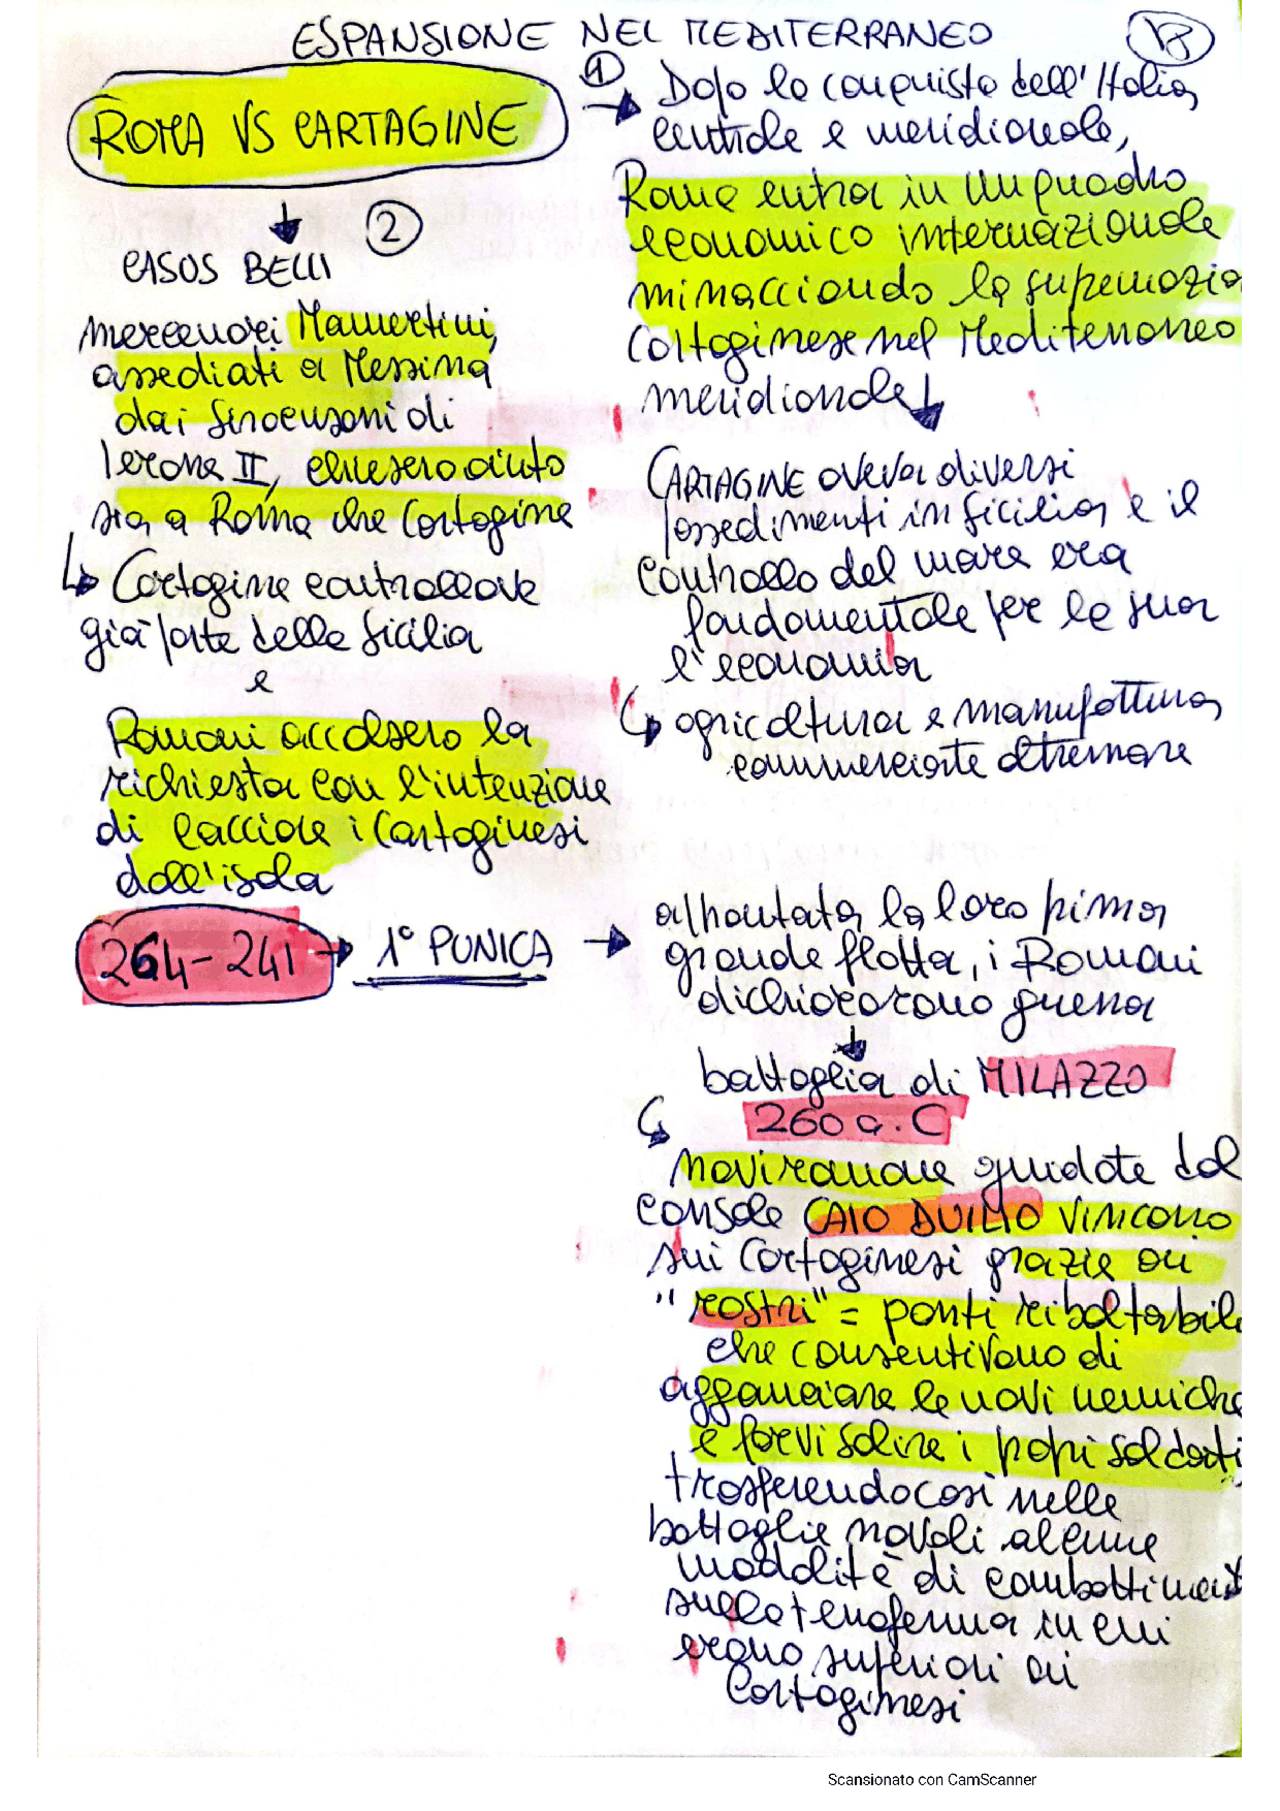 ESPANSIONE NEL MEDITERRANEO
18
ROMA VS CARTAGINE
1
→ Dopo la conquista dell'Italia
centrale e meridionale,
Roma entra in un quadro
economico internazionale
minacciando la supremazia
Cartaginese nel Mediterraneo
meridionale
CARTAGINE aveva diversi
possedimenti in Sicilia e il
controllo del mare era
fondamentale per la sua
l'economia
↳ agricoltura e manufattura,
commerciate oltremare
↓ 2
CASOS BELLI
mercenari Mamertini,
assediati a Messina
dai Siracusani di
Ierone II, chiesero aiuto
sia a Roma che Cartagine
↳ Cartagine controllava
già parte della Sicilia
e
Romani accolsero la
richiesta con l'intenzione
di cacciare i Cartaginesi
dall'isola
264-241 → 1° PUNICA →
affrontata la loro prima
grande flotta, i Romani
dichiararono guerra
↓
battaglia di MILAZZO
260 a.C
↳
navi romane guidate dal
console CAIO DUILIO vincono
sui Cartaginesi grazie ai
"rostri" = ponti ribaltabili
che consentivano di
agganciare le navi nemiche
e farvi salire i propi soldati,
trasferendo così nelle
battaglie navali alcune
modalità di combattiment
sulla terraferma in cui
erano superiori ai
Cartaginesi
Scansionato con CamScanner